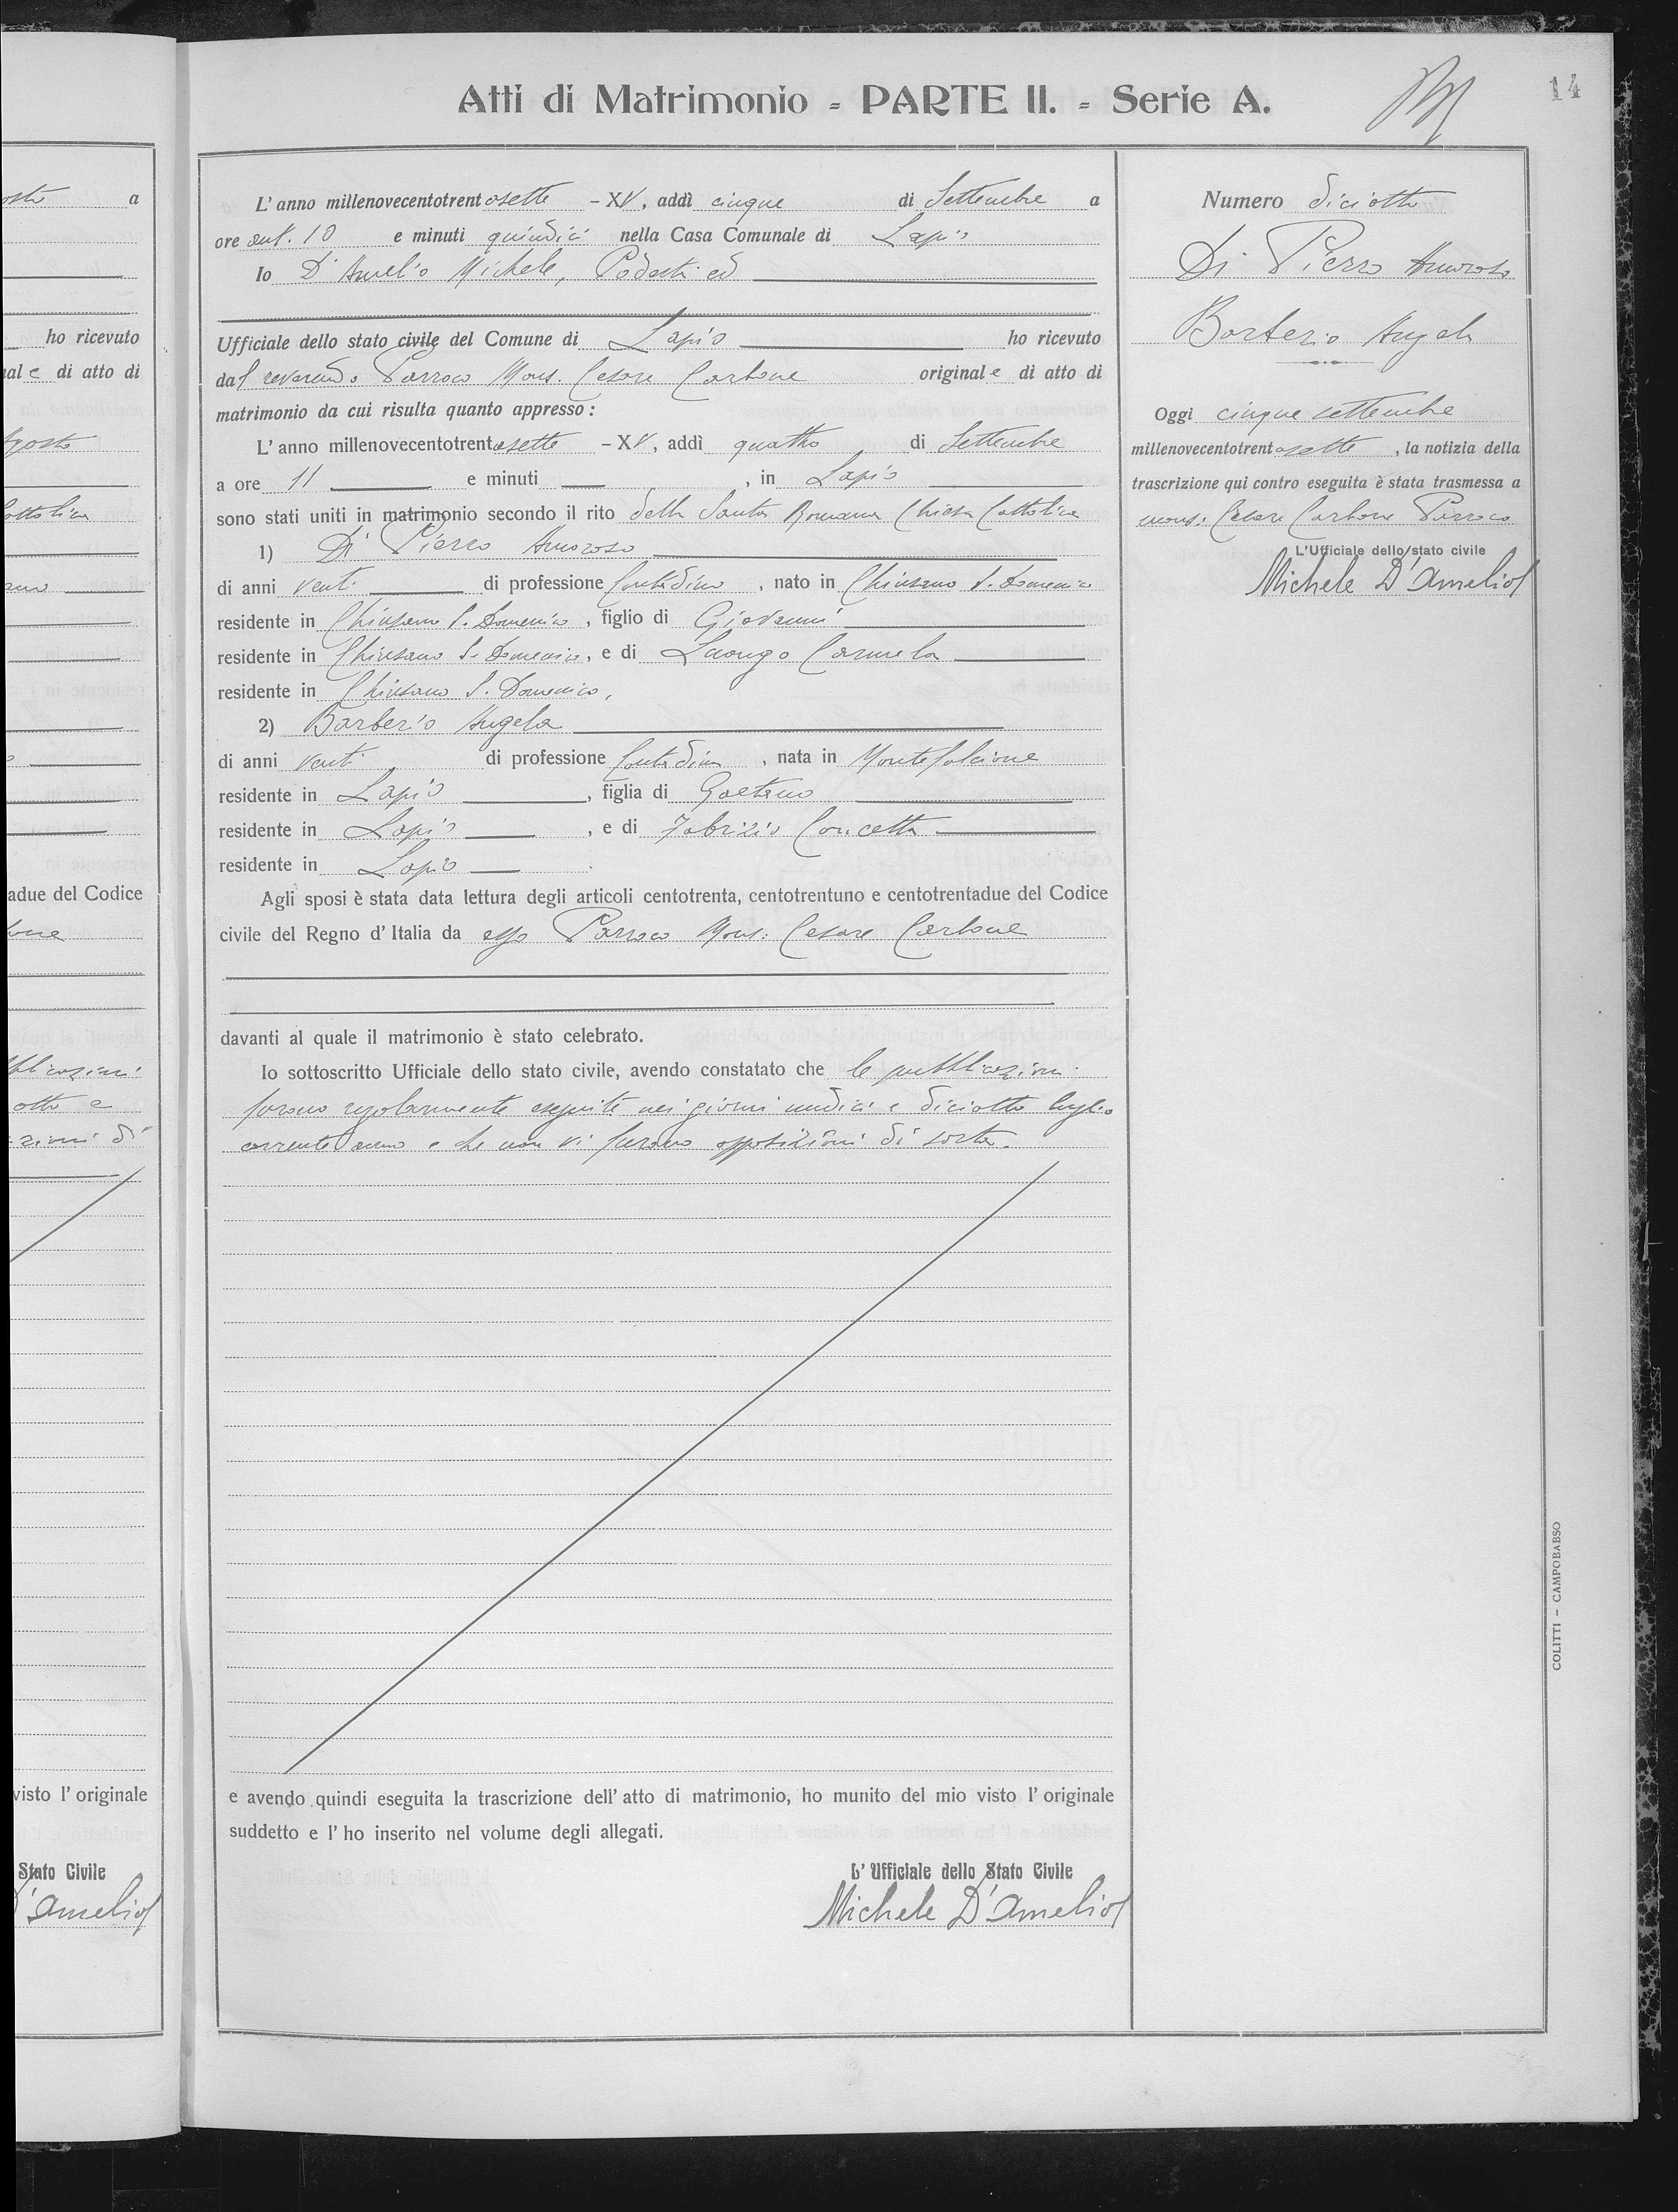 Atti di Matrimonio - PARTE II. - Serie A.
14
L'anno millenovecentotrentasette - XV, addì cinque di Settembre a
ore ant. 10 e minuti quindici nella Casa Comunale di Lapio
Io D'Amelio Michele, Podestà ed
Ufficiale dello stato civile del Comune di Lapio ho ricevuto
dal reverendo Parroco Mons. Cesare Carbone originale di atto di
matrimonio da cui risulta quanto appresso:
L'anno millenovecentotrentasette - XV, addì quattro di Settembre
a ore 11 e minuti , in Lapio
sono stati uniti in matrimonio secondo il rito della Santa Romana Chiesa Cattolica
1) Di Pierro Amoroso
di anni venti di professione Contadino , nato in Chiusano S. Domenico
residente in Chiusano S. Domenico , figlio di Giovanni
residente in Chiusano S. Domenico, e di Luongo Carmela
residente in Chiusano S. Domenico,
2) Barberio Angela
di anni venti di professione Contadina , nata in Montefalcione
residente in Lapio , figlia di Gaetano
residente in Lapio , e di Fabrizio Concetta
residente in Lapio
Agli sposi è stata data lettura degli articoli centotrenta, centotrentuno e centotrentadue del Codice
civile del Regno d'Italia da esso Parroco Mons: Cesare Carbone
davanti al quale il matrimonio è stato celebrato.
Io sottoscritto Ufficiale dello stato civile, avendo constatato che le pubblicazioni
furono regolarmente eseguite nei giorni undici e diciotto luglio
corrente anno e che non vi furono opposizioni di sorta.
e avendo quindi eseguita la trascrizione dell'atto di matrimonio, ho munito del mio visto l'originale
suddetto e l'ho inserito nel volume degli allegati.
L'Ufficiale dello Stato Civile
Michele D'Amelio
Numero diciotto
Di Pierro Amoroso
Barberio Angela
Oggi cinque settembre
millenovecentotrentasette , la notizia della
trascrizione qui contro eseguita è stata trasmessa a
mons: Cesare Carbone Parroco
L'Ufficiale dello stato civile
Michele D'Amelio
COLITTI - CAMPOBASSO
a
ho ricevuto
di atto di
Agosto
adue del Codice
visto l'originale
Stato Civile
D'Amelio